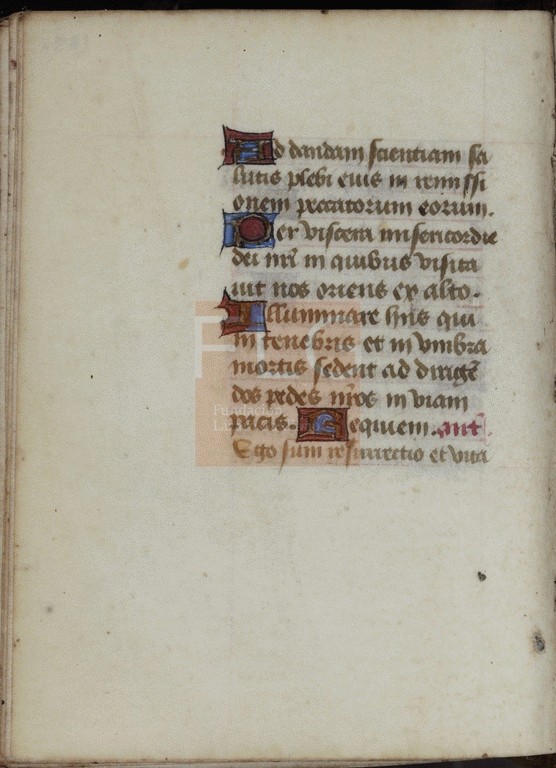 Ad dandam scientiam sa
lutis plebi eius in remissi
onem peccatorum eorum.
Per viscera misericordie
dei nr̄i in quibus visita
uit nos oriens ex alto.
Illuminare hiis qui
in tenebris et in vmbra
mortis sedent ad dirigē
dos pedes nr̄os in viam
pacis. Requiem. ant̄.
Ego sum resurrectio et vita
FLG
Fundación